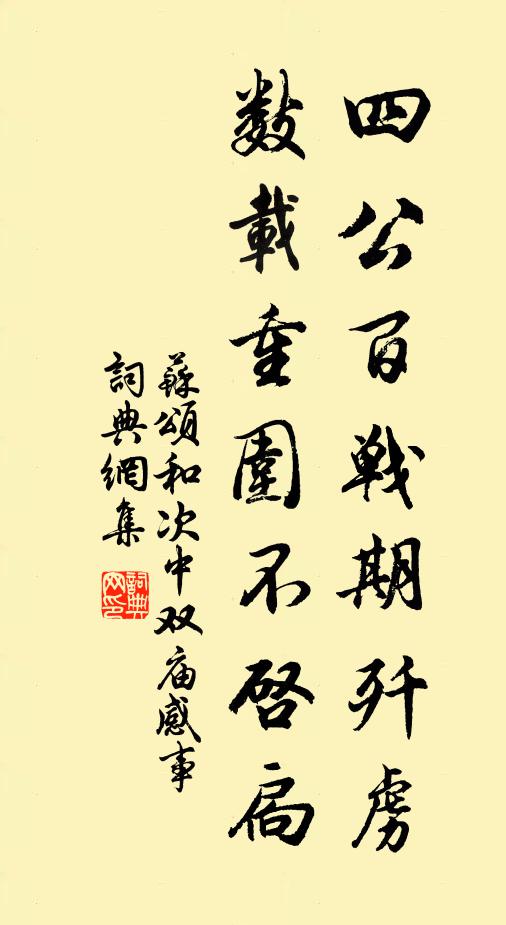 四公百戦期歼虏
数載重圍不啓扃
蘇頌和次中双庙感事
詞典網集
詞典网印